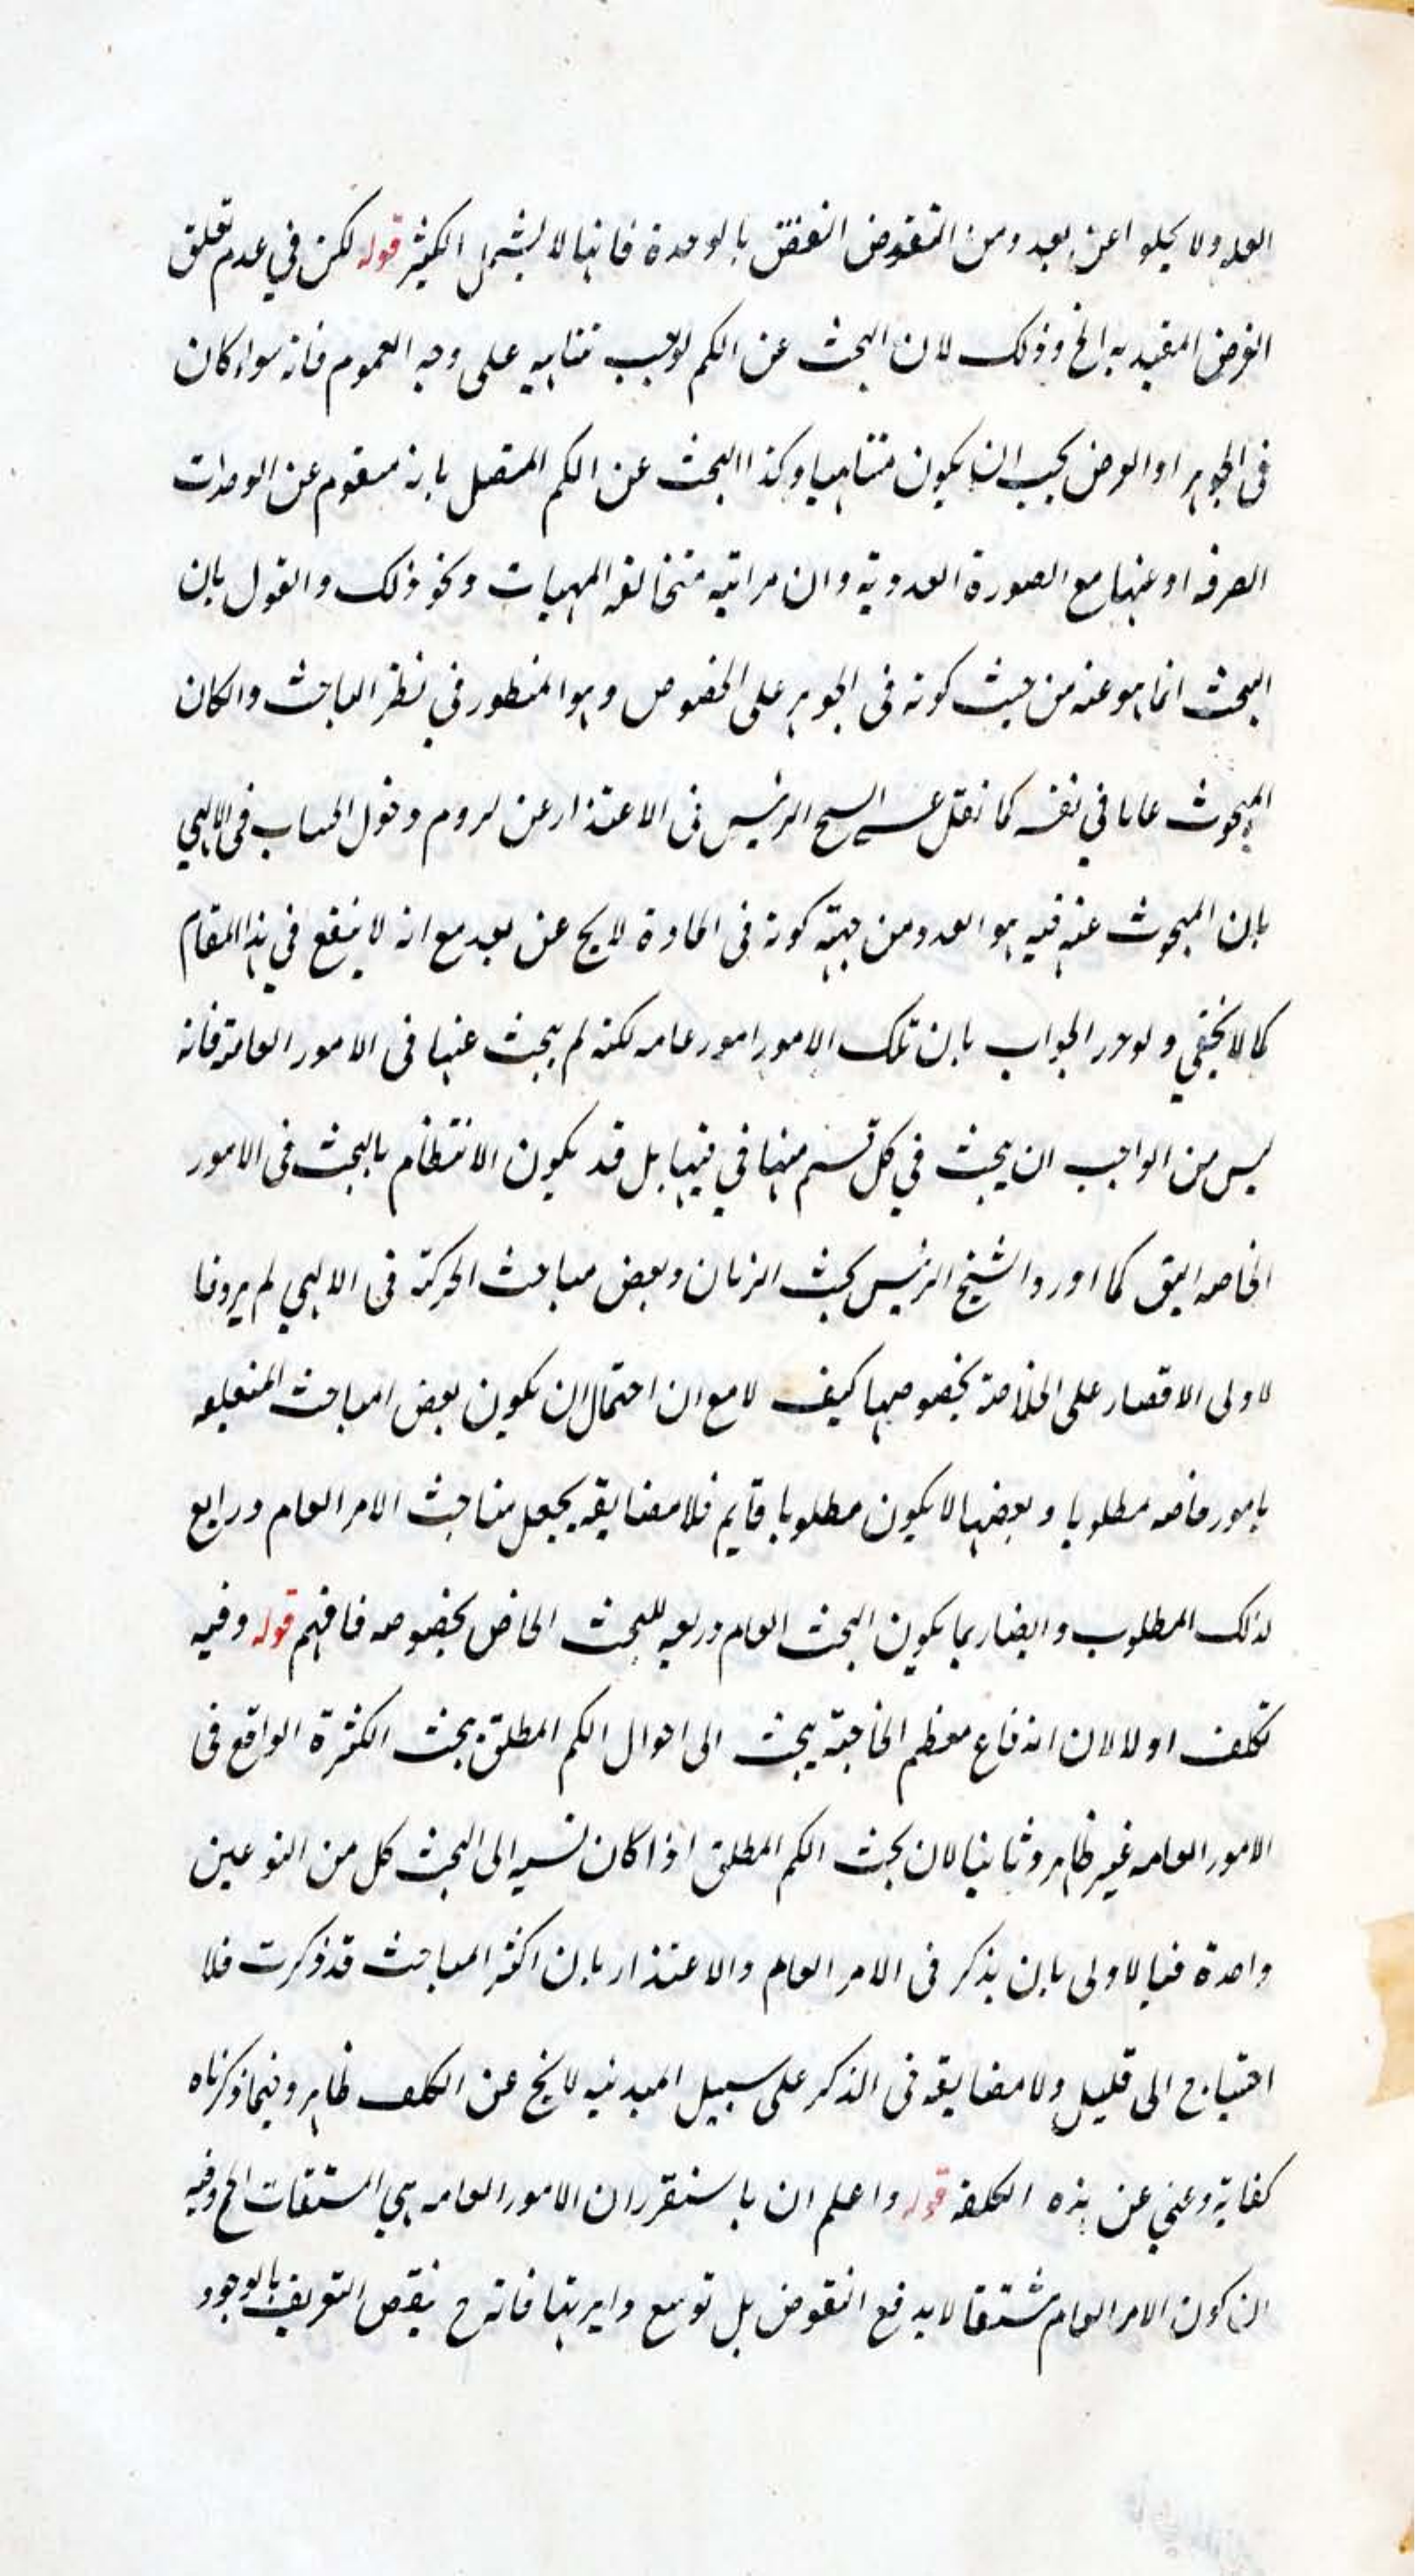 العد ولا يخلوا عن بعد ومن النقوض النقض بالوحدة فانها لا يشمل الكثير قوله لكن في عدم تعلق
الغرض المفيد به الخ وذلك لان البحث عن الكم لوجب تناهيه على وجه العموم فانه سواء كان
فى الجوهر او العرض يجب ان يكون متناهيا وكذا البحث عن الكم المتصل بانه متقوم عن الوحدات
الصرفه او عنها مع الصورة العددية وان مراتبه متخالفه المهيات ونحو ذلك والقول بان
البحث انما هو عنه من حيث كونه فى الجوهر على الخصوص وهو المنظور في نظر الباحث والكان
المبحوث عاما في نفسه كما نقل عن الشيخ الرئيس فى الاعتذار عن لزوم دخول الحساب فى الالهي
بان المبحوث عنه فيه هو العدد من جهة كونه فى المادة لايخ عن بعد مع انه لا ينفع في هذا المقام
كما لا يخفي ولو حرر الجواب بان تلك الامور امور عامه لكنه لم يبحث عنها فى الامور العامة فانه
ليس من الواجب ان يبحث في كل قسم منها في فيها بل قد يكون الانتظام بالبحث فى الامور
الخاصه اليق كما اورد الشيخ الرئيس بحث الزمان وبعض مباحث الحركة فى الالهي لم يرد ما
لاولى الاقصار على الخلاصة بخصوصها كيف لا مع ان احتمال ان يكون بعض المباحث المتعلقه
بامور خاصه مطلوبا وبعضها لا يكون مطلوبا قايم فلا مضايقه يجعل مباحث الامر العام ذرايع
لذلك المطلوب وايضا ربما يكون البحث العام ذريعه للبحث الخاص بخصوصه فافهم قوله وفيه
تكلف اولا لان اندفاع معظم الحاجة يبحث الى احوال الكم المطلق بحث الكثرة الواقع فى
الامور العامه غير ظاهر وثانيا لان بحث الكم المطلق اذا كان نسبه الى البحث كل من النوعين
واحدة فيا لاولى بان يذكر فى الامر العام والاعتذار بان اكثر المباحث قد ذكرت فلا
احتياج الى قليل ولا مضايقه فى الذكر على سبيل المبدئيه لايخ عن التكلف ظاهر وفيما ذكرناه
كفاية وغني عن هذه التكلفه قوله واعلم ان باستقرر ان الامور العامه هي المشتقات الخ وفيه
ان كون الامر العام مشتقا لا يدفع النقوض بل توسع دايرتها فانه ح ينقص التعريف بالوجود